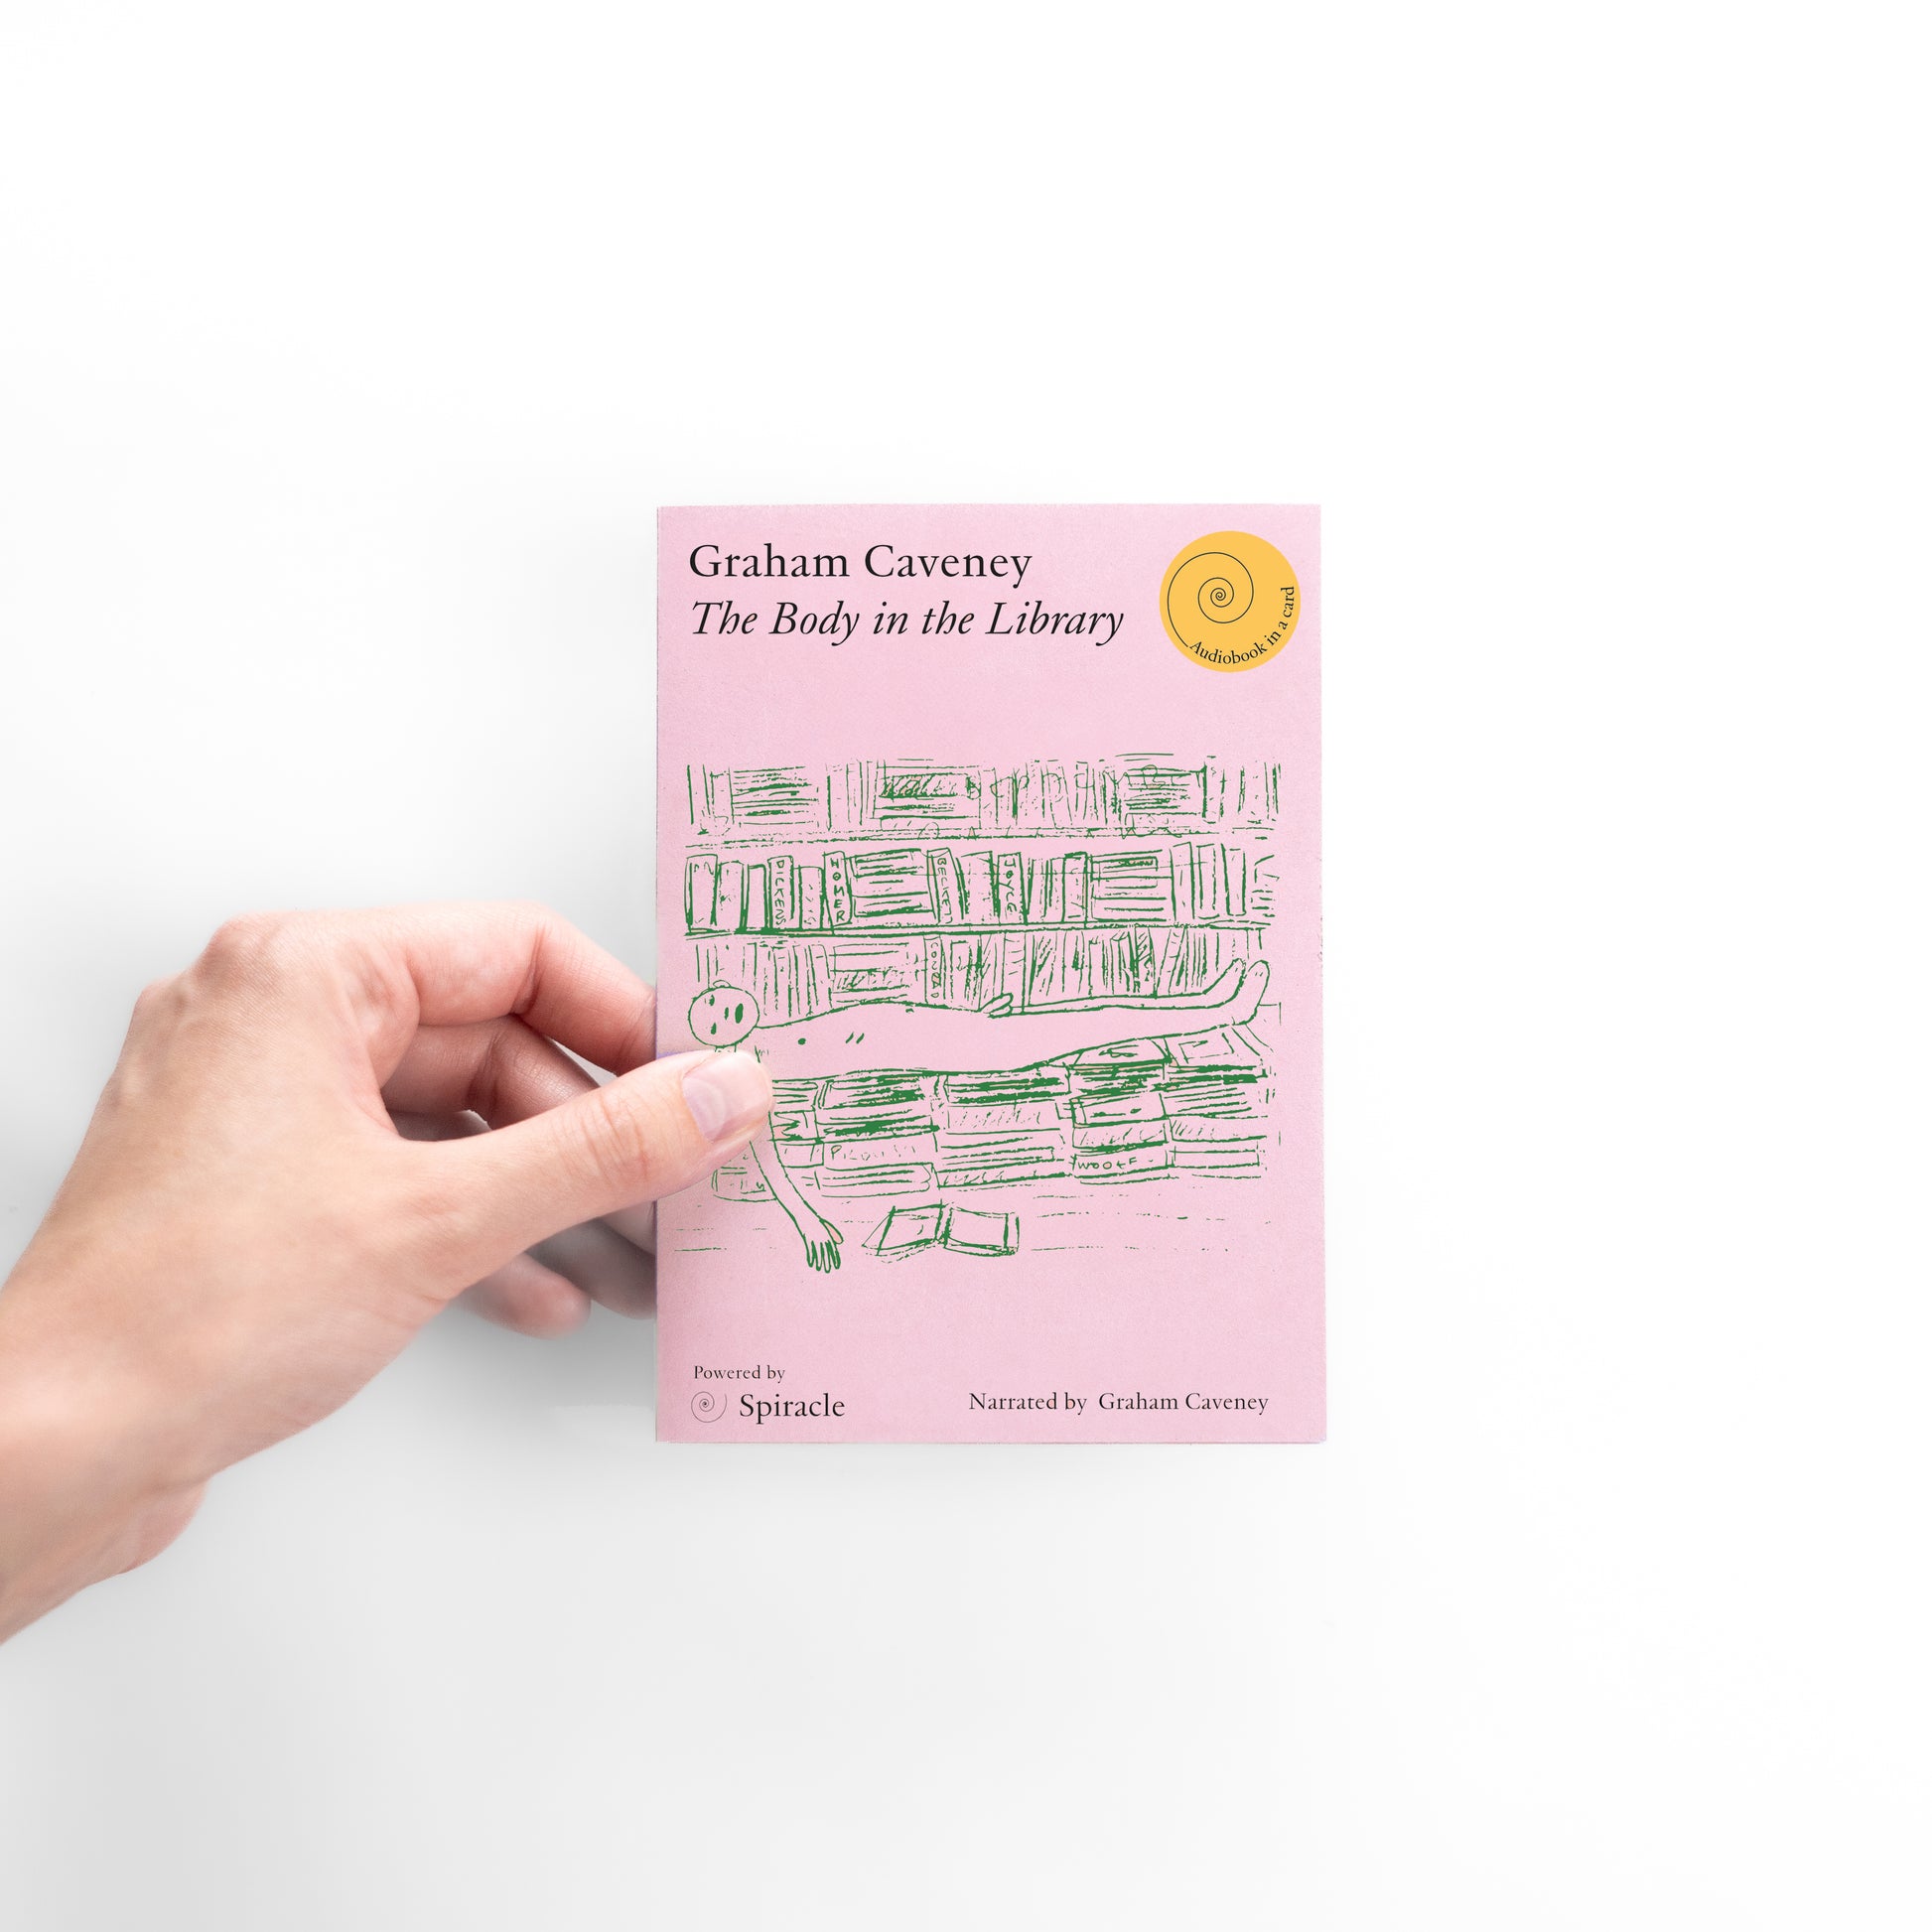 Graham Caveney
The Body in the Library
Audiobook in a card
DICKENS
HOMER
BECKETT
JOYCE
WOOLF
Powered by
Spiracle
Narrated by Graham Caveney